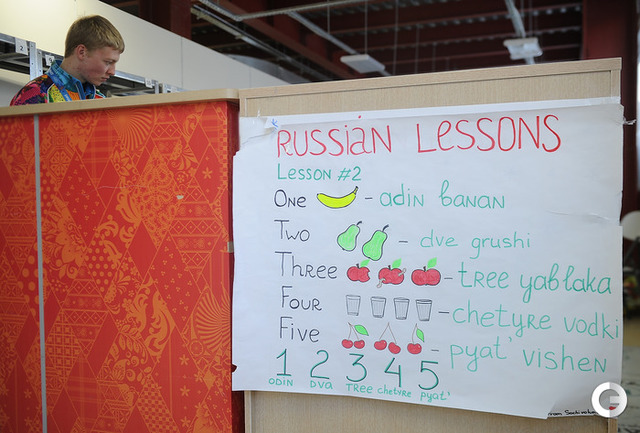 RUSSIAN LESSONS
LESSON #2
ONE - adin banan
Two - dve grushi
Three - tree yablaka
Four - chetyre vodki
Five - pyat' vishen
1 2 3 4 5
ODIN DVA TREE chetyre pyat'
2